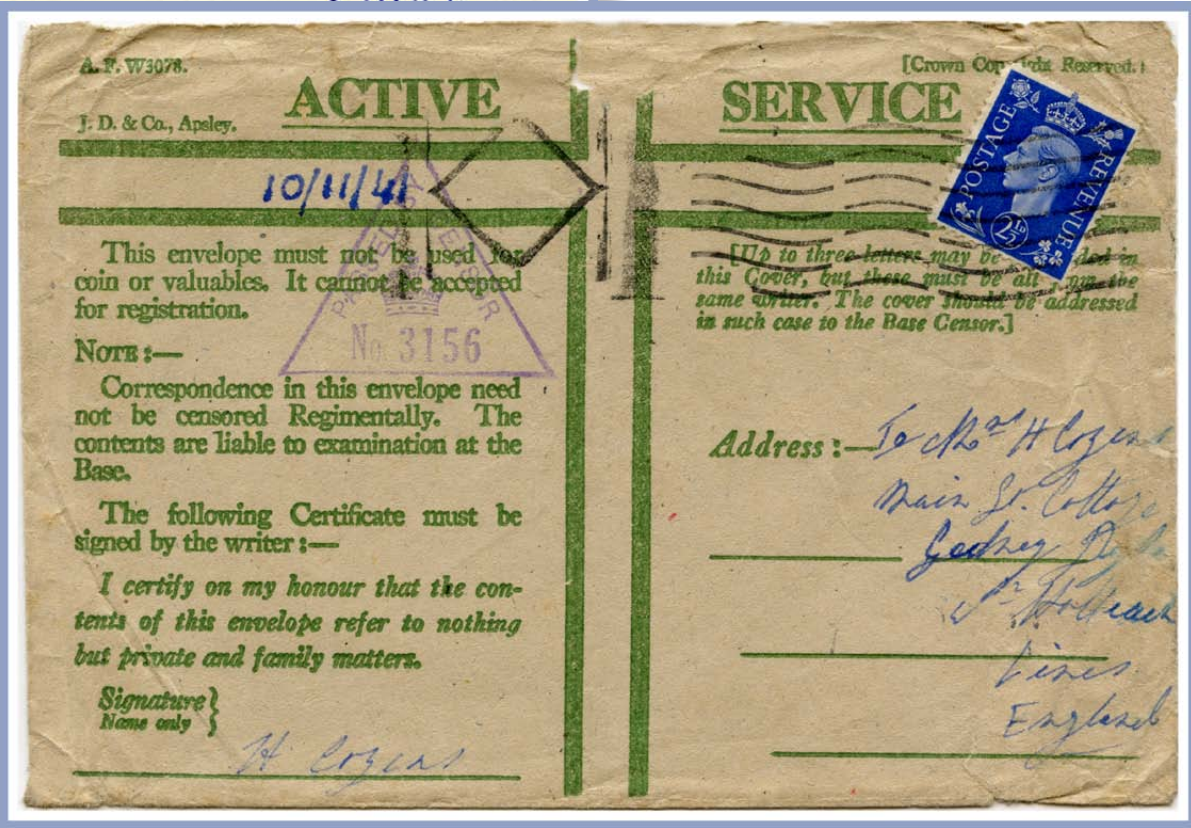 A. F. W3078.
[Crown Copyright Reserved.]
ACTIVE SERVICE
J. D. & Co., Apsley.
POSTAGE REVENUE
2½D
10/11/41
PASSED BY CENSOR
No. 3156
This envelope must not be used for
coin or valuables. It cannot be accepted
for registration.
NOTE:—
Correspondence in this envelope need
not be censored Regimentally. The
contents are liable to examination at the
Base.
The following Certificate must be
signed by the writer:—
I certify on my honour that the con-
tents of this envelope refer to nothing
but private and family matters.
Signature}
Name only
H Cozens
[Up to three letters may be in
this Cover, but these must be all from the
same writer. The cover should be addressed
in such case to the Base Censor.]
Address:— To Mrs H Cozens
Main St. Cottage
Gedney Dyke
Nr Holbeach
Lincs
England